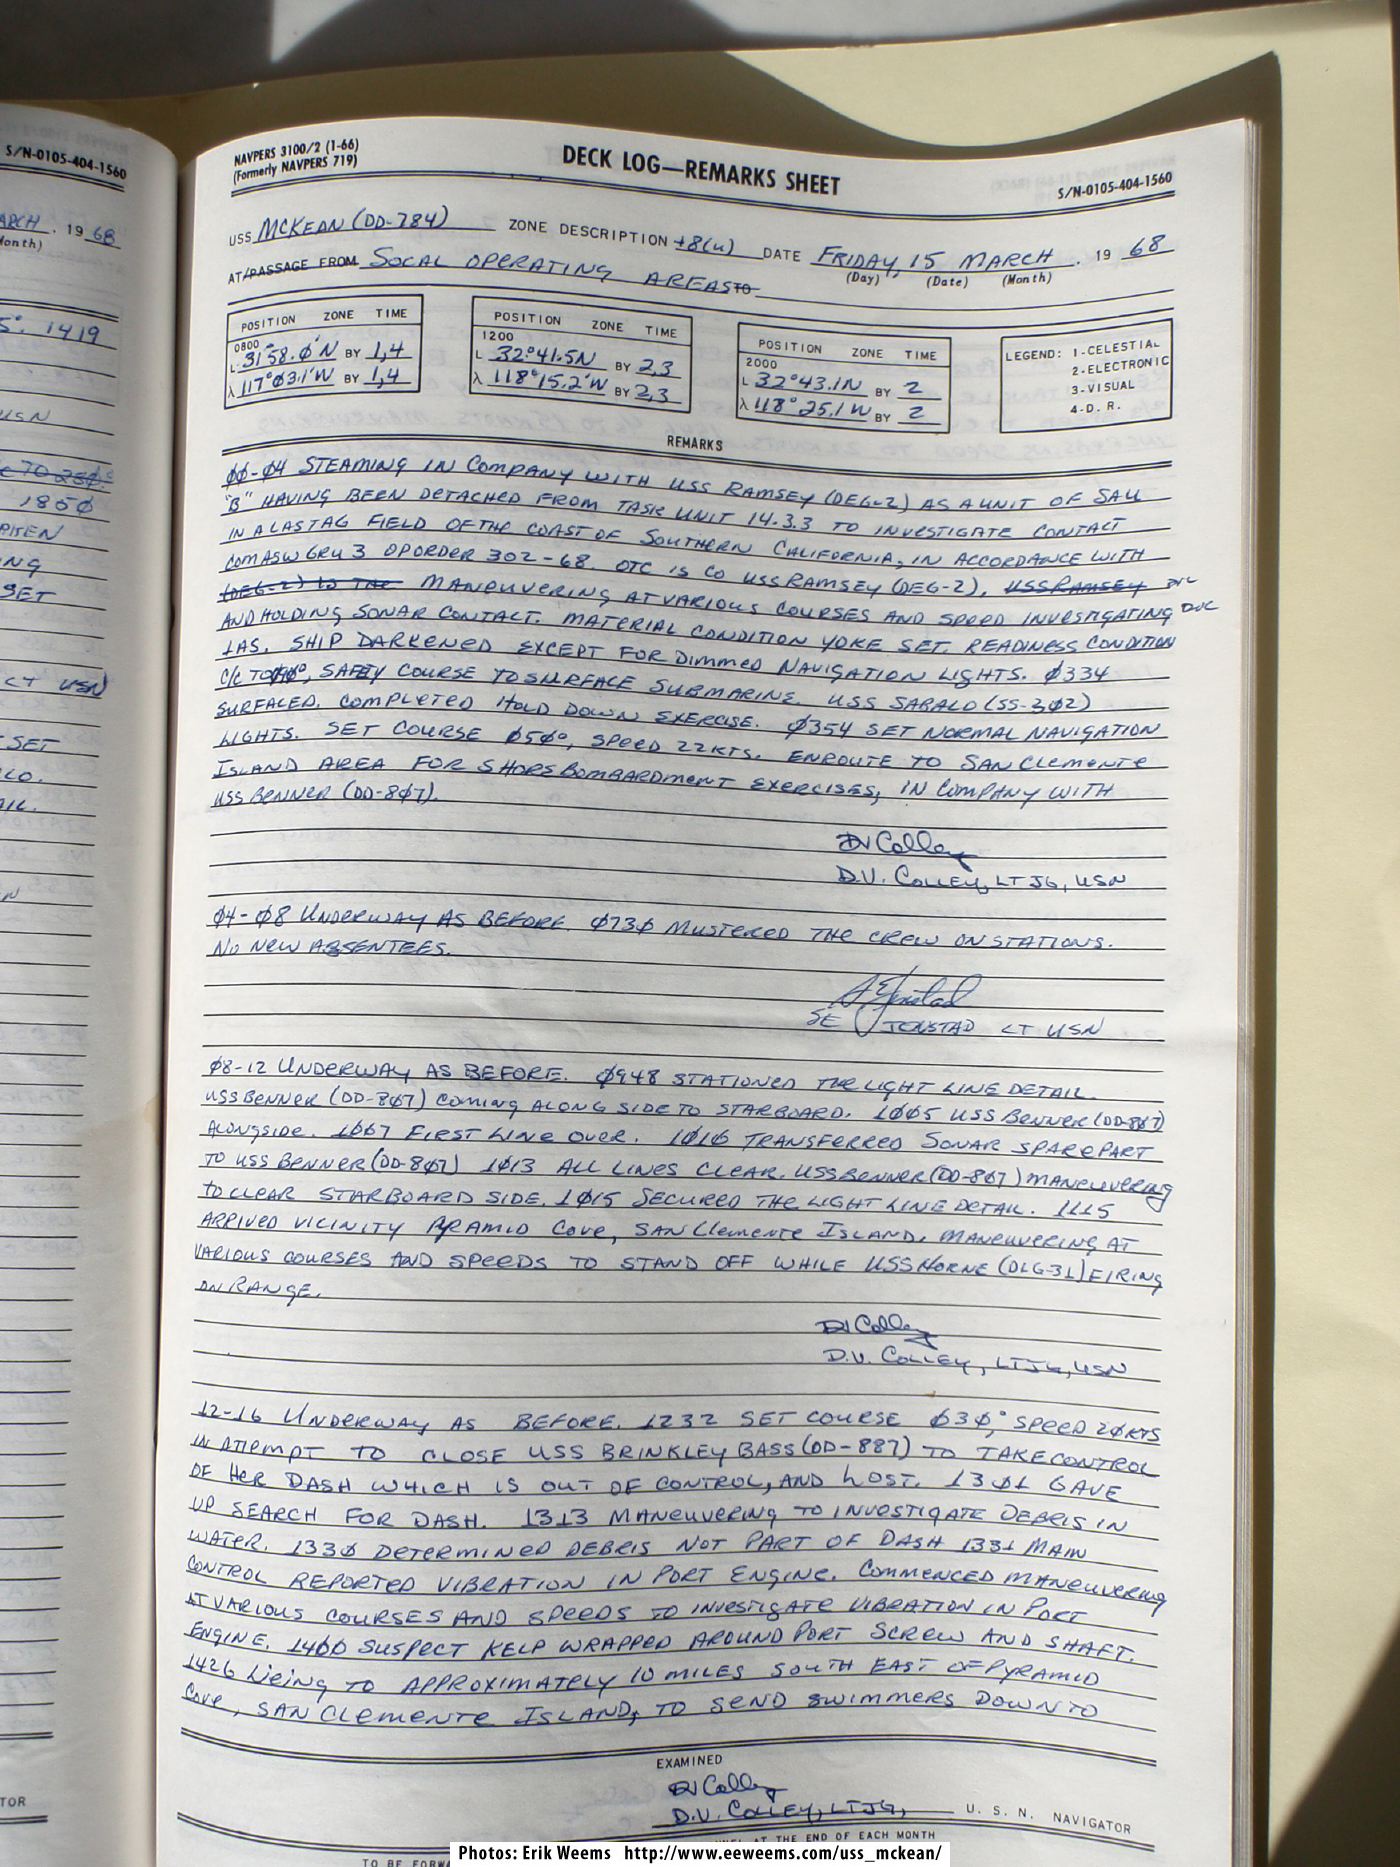 S/N-0105-404-1560
19 68
5°. 1419
USN
1850
SET
LT USN
SET
NAVPERS 3100/2 (1-66)
(Formerly NAVPERS 719)
DECK LOG—REMARKS SHEET
S/N-0105-404-1560
USS MCKEAN (DD-784) ZONE DESCRIPTION +8(U) DATE FRIDAY, 15 MARCH . 19 68
(Day) (Date) (Month)
AT/PASSAGE FROM SOCAL OPERATING AREAS TO
POSITION ZONE TIME
0800
L 31°58.Ø'N BY 1,4
λ 117°Ø3.1'W BY 1,4
POSITION ZONE TIME
1200
L 32°41.5N BY 2,3
λ 118°15.2'W BY 2,3
POSITION ZONE TIME
2000
L 32°43.1N BY 2
λ 118°25.1W BY 2
LEGEND: 1-CELESTIAL
2-ELECTRONIC
3-VISUAL
4-D. R.
REMARKS
ØØ-Ø4 STEAMING IN COMPANY WITH USS RAMSEY (DEG-2) AS A UNIT OF SAU
"B" HAVING BEEN DETACHED FROM TASK UNIT 14.3.3 TO INVESTIGATE CONTACT
IN A LASTAG FIELD OF THE COAST OF SOUTHERN CALIFORNIA, IN ACCORDANCE WITH
COMASWGRU 3 OPORDER 302-68. OTC IS CO USS RAMSEY (DEG-2). USS RAMSEY DVC
(DEG-2) IS THE MANEUVERING AT VARIOUS COURSES AND SPEED INVESTIGATING DVC
AND HOLDING SONAR CONTACT. MATERIAL CONDITION YOKE SET. READINESS CONDITION
1AS. SHIP DARKENED EXCEPT FOR DIMMED NAVIGATION LIGHTS. Ø334
C/C TO, SAFETY COURSE TO SURFACE SUBMARINE. USS SABALO (SS-3Ø2)
SURFACED. COMPLETED HOLD DOWN EXERCISE. Ø354 SET NORMAL NAVIGATION
LIGHTS. SET COURSE Ø5Ø°, SPEED 22KTS. ENROUTE TO SAN CLEMENTE
ISLAND AREA FOR SHORE BOMBARDMENT EXERCISES, IN COMPANY WITH
USS BENNER (DD-8Ø7).
DV Colley
D.V. COLLEY, LTJG, USN
Ø4-Ø8 UNDERWAY AS BEFORE. Ø73Ø MUSTERED THE CREW ON STATIONS.
NO NEW ABSENTEES.
SE LT USN
Ø8-12 UNDERWAY AS BEFORE. Ø948 STATIONED THE LIGHT LINE DETAIL.
USS BENNER (DD-8Ø7) COMING ALONG SIDE TO STARBOARD. 1ØØ5 USS BENNER (DD-8Ø7)
ALONGSIDE. 1ØØ7 FIRST LINE OVER. 1Ø1Ø TRANSFERRED SONAR SPARE PART
TO USS BENNER (DD-8Ø7) 1Ø13 ALL LINES CLEAR. USS BENNER (DD-8Ø7) MANEUVERING
TO CLEAR STARBOARD SIDE. 1Ø15 SECURED THE LIGHT LINE DETAIL. 1115
ARRIVED VICINITY PYRAMID COVE, SAN CLEMENTE ISLAND. MANEUVERING AT
VARIOUS COURSES AND SPEEDS TO STAND OFF WHILE USS HORNE (DLG-31) FIRING
ON RANGE.
DV Colley
D.V. COLLEY, LTJG, USN
12-16 UNDERWAY AS BEFORE. 1232 SET COURSE Ø3Ø°, SPEED 2ØKTS
IN ATTEMPT TO CLOSE USS BRINKLEY BASS (DD-887) TO TAKE CONTROL
OF HER DASH WHICH IS OUT OF CONTROL, AND LOST. 13Ø1 GAVE
UP SEARCH FOR DASH. 1313 MANEUVERING TO INVESTIGATE DEBRIS IN
WATER. 133Ø DETERMINED DEBRIS NOT PART OF DASH 1331 MAIN
CONTROL REPORTED VIBRATION IN PORT ENGINE. COMMENCED MANEUVERING
AT VARIOUS COURSES AND SPEEDS TO INVESTIGATE VIBRATION IN PORT
ENGINE. 14ØØ SUSPECT KELP WRAPPED AROUND PORT SCREW AND SHAFT.
1426 LIEING TO APPROXIMATELY 10 MILES SOUTH EAST OF PYRAMID
COVE, SAN CLEMENTE ISLAND, TO SEND SWIMMERS DOWN TO
EXAMINED
DV Colley
D.V. COLLEY, LTJG, U. S. N. NAVIGATOR
AT THE END OF EACH MONTH
TO BE
Photos: Erik Weems http://www.eeweems.com/uss_mckean/